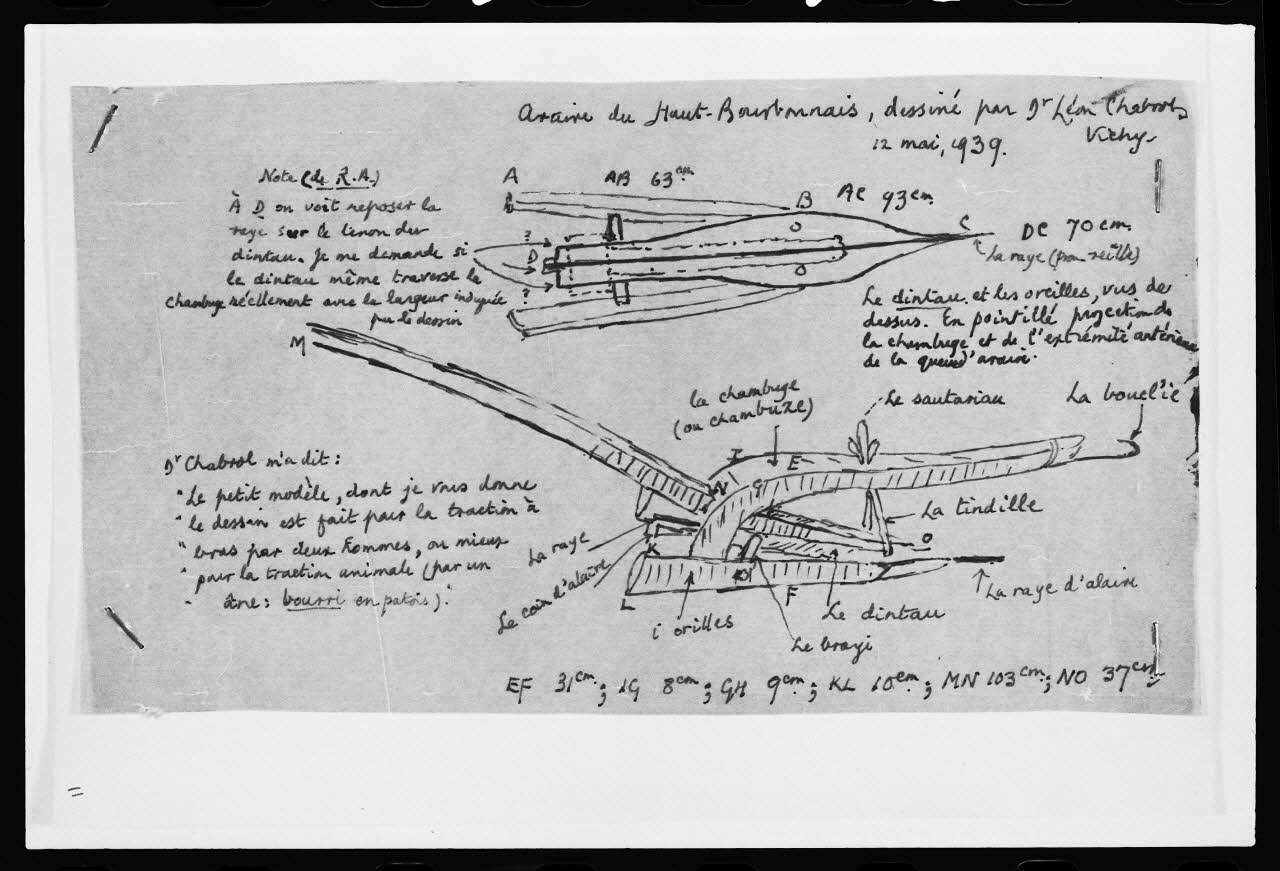 Araire du Haut-Bourbonnais, dessiné par Dr Léon Chabrol,
Vichy.
12 mai, 1939.
Note (de R.A.)
À D on voit reposer la
raye sur le tenon du
dintau. Je me demande si
le dintau même traverse la
chambuge réellement avec la largeur indiquée
par le dessin
A
AB 63 cm
B
AC 93 cm.
C
DC 70 cm.
?
D
?
O
O
La raye (pron. réille)
Le dintau et les oreilles, vus de
dessus. En pointillé projection de
la chambuge et de l'extrémité antérieure
de la queue d'araire.
M
la chambuge
(ou chambuze)
Le sautariau
La boucl'ie
I
E
N
G
Dr Chabrol m'a dit :
"Le petit modèle, dont je vous donne
" le dessin est fait pour la traction à
" bras par deux hommes, ou mieux
" pour la traction animale (par un
" âne : bourri en patois)."
La tindille
O
La raye
K
Le coin d'alaire
L
H
F
La raye d'alaire
i orilles
Le dintau
Le brayi
EF 31 cm ; IG 8 cm ; GH 9 cm ; KL 10 cm ; MN 103 cm ; NO 37 cm